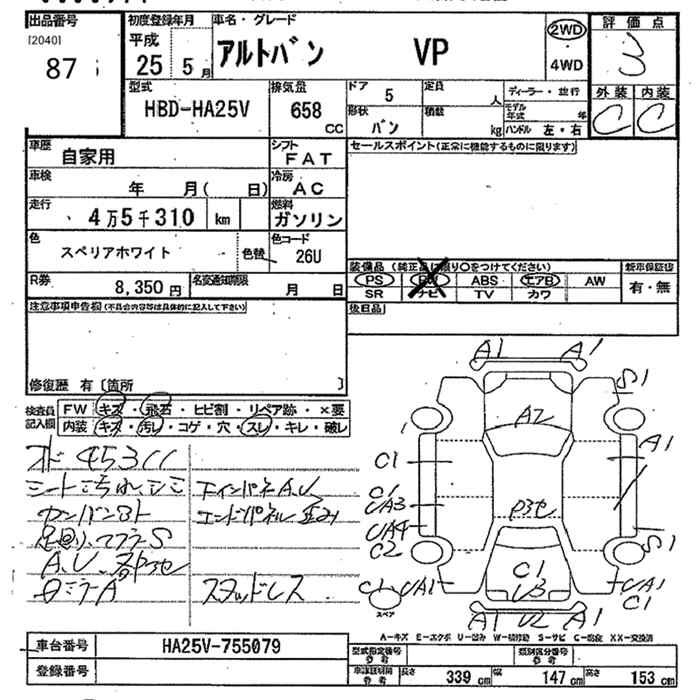 出品番号 初度登録年月 車名・グレード 評価点
[2040] 平成
87 25年 5月 アルトバン VP 2WD・4WD 3
型式 排気量 ドア 定員 ディーラー・並行 外装 内装
HBD-HA25V 658 CC 5 人 モデル年式 年 C C
形状 積載
バン kg ハンドル 左・右
車歴 シフト セールスポイント(正常に機能するものに限ります)
自家用 FAT
車検 冷房
年 月( 日) AC
走行 燃料
4万5千310 km ガソリン
色 色替 色コード
スペリアホワイト 26U
装備品 (純正品に限り○をつけてください) 新車保証書
R券 名変通知期限 PS PW ABS エアB AW 有・無
8,350円 月 日 SR ナビ TV カワ
注意事項申告欄(不具合内容等は具体的に記入して下さい) 後日品
修復歴 有 〔箇所 〕
検査員記入欄 FW キズ・飛石・ヒビ割・リペア跡・×要
内装 キズ・汚レ・コゲ・穴・スレ・キレ・破レ
45311
A.U.
スタッドレス
A1 A1
S1
A2
C1 A1
C1
UA3
UA4
C2 S1
C1 UA1 C1 UA1
U3 C1
スペア
A1 U2 A1
A-キズ E-エクボ U-凹み W-補修跡 S-サビ C-腐食 XX-交換済
車台番号 HA25V-755079 型式指定番号 参考 類別区分番号 参考
登録番号 車検証明閲 参考 長さ 339 cm 幅 147 cm 高さ 153 cm